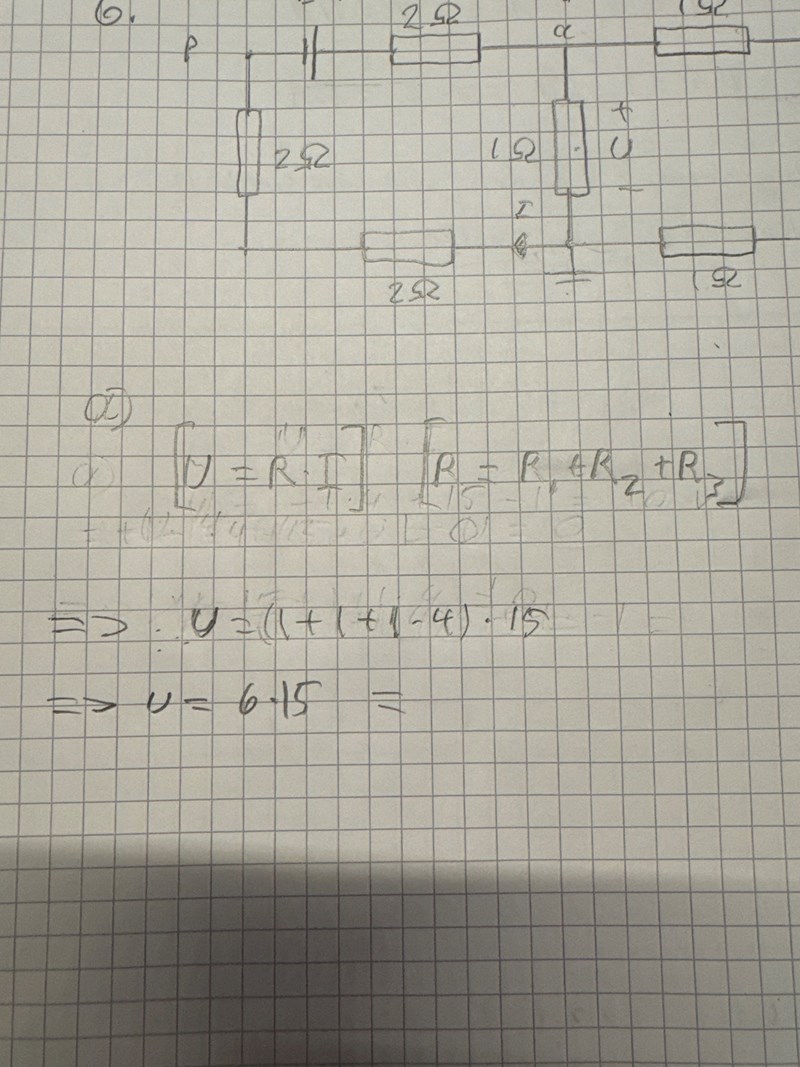 6.
2Ω
α
1Ω
P
2Ω
1Ω
+
U
-
I
2Ω
1Ω
[U = R · I] [R = R1 + R2 + R3]
=> U = (1+1+1-4) · 15
=> U = 6·15 =